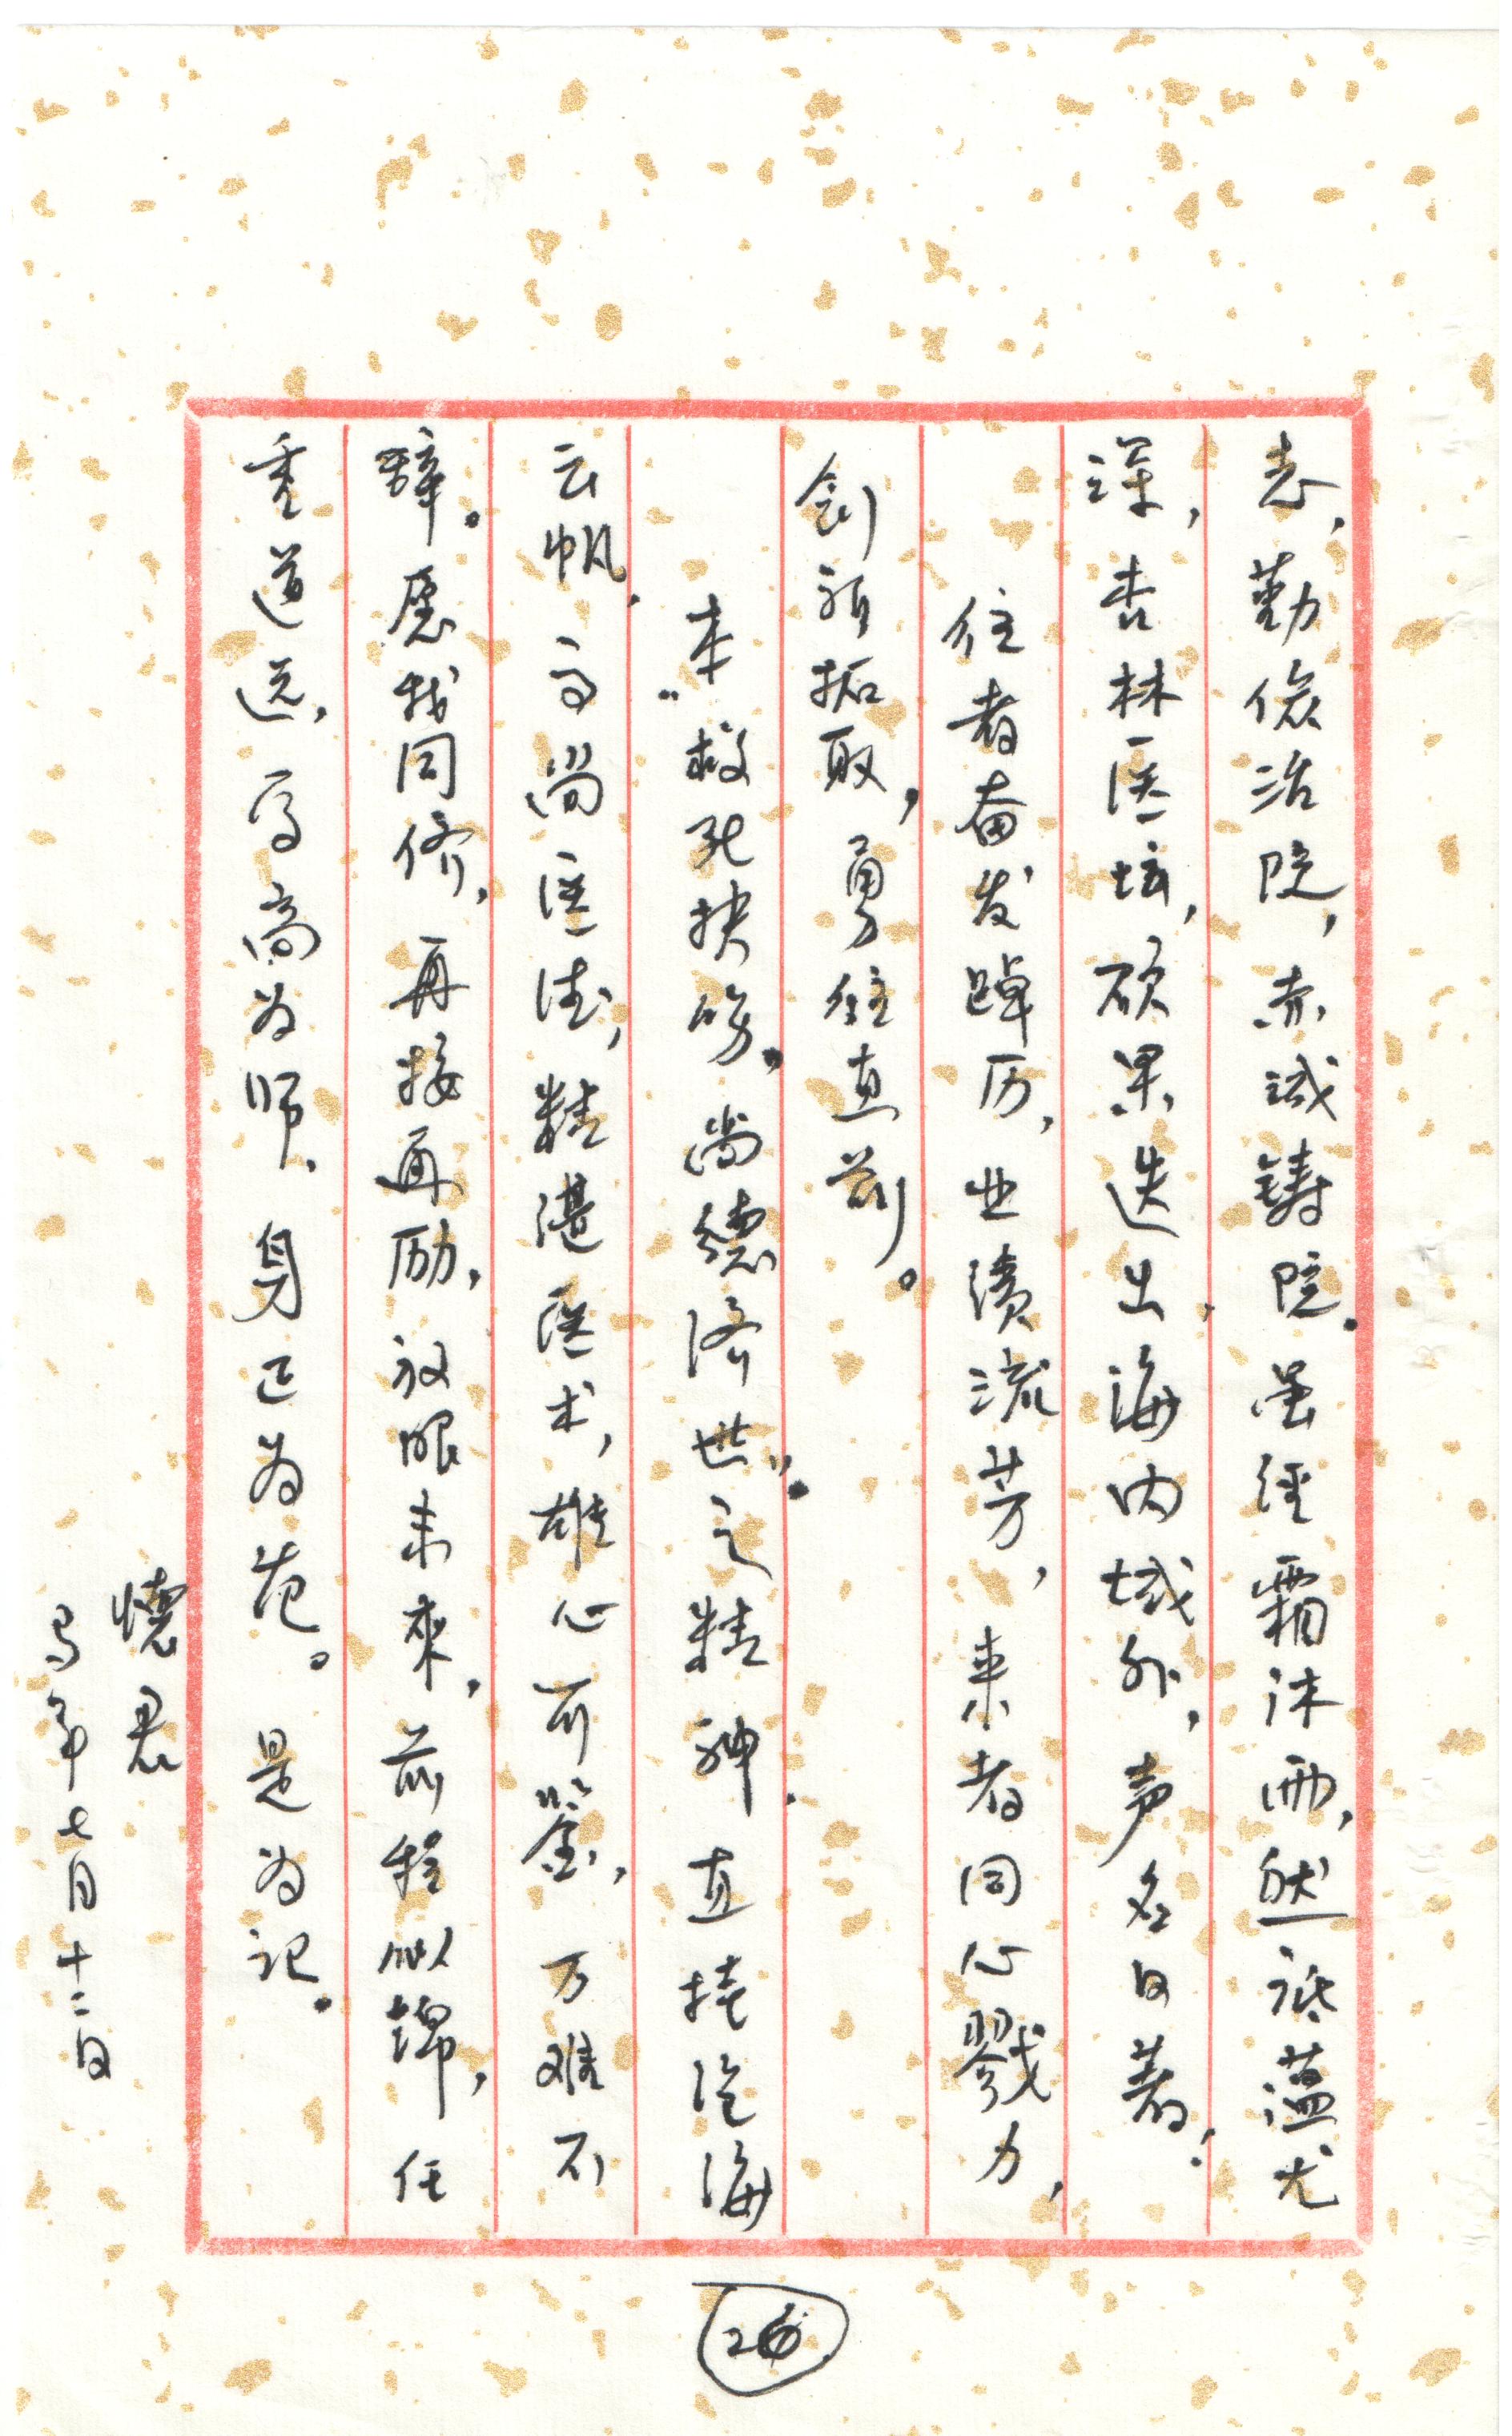 志，勤俭治院，赤诚铸院。虽经霜沐雨，然底蕴尤
深，杏林医坛，硕果迭出，海内域外，声名日著！
往者奋发踔厉，业绩流芳，来者同心戮力，
创新拓取，勇往直前。
本“救死扶伤，尚德济世”之精神，直挂沧海
云帆，高尚医德，精湛医术，雄心可鉴，万难不
辞。愿我同侪，再接再励，放眼未来，前程似锦，任
重道远，学高为师，身正为范。是为记。
怀君
马年七月十二日